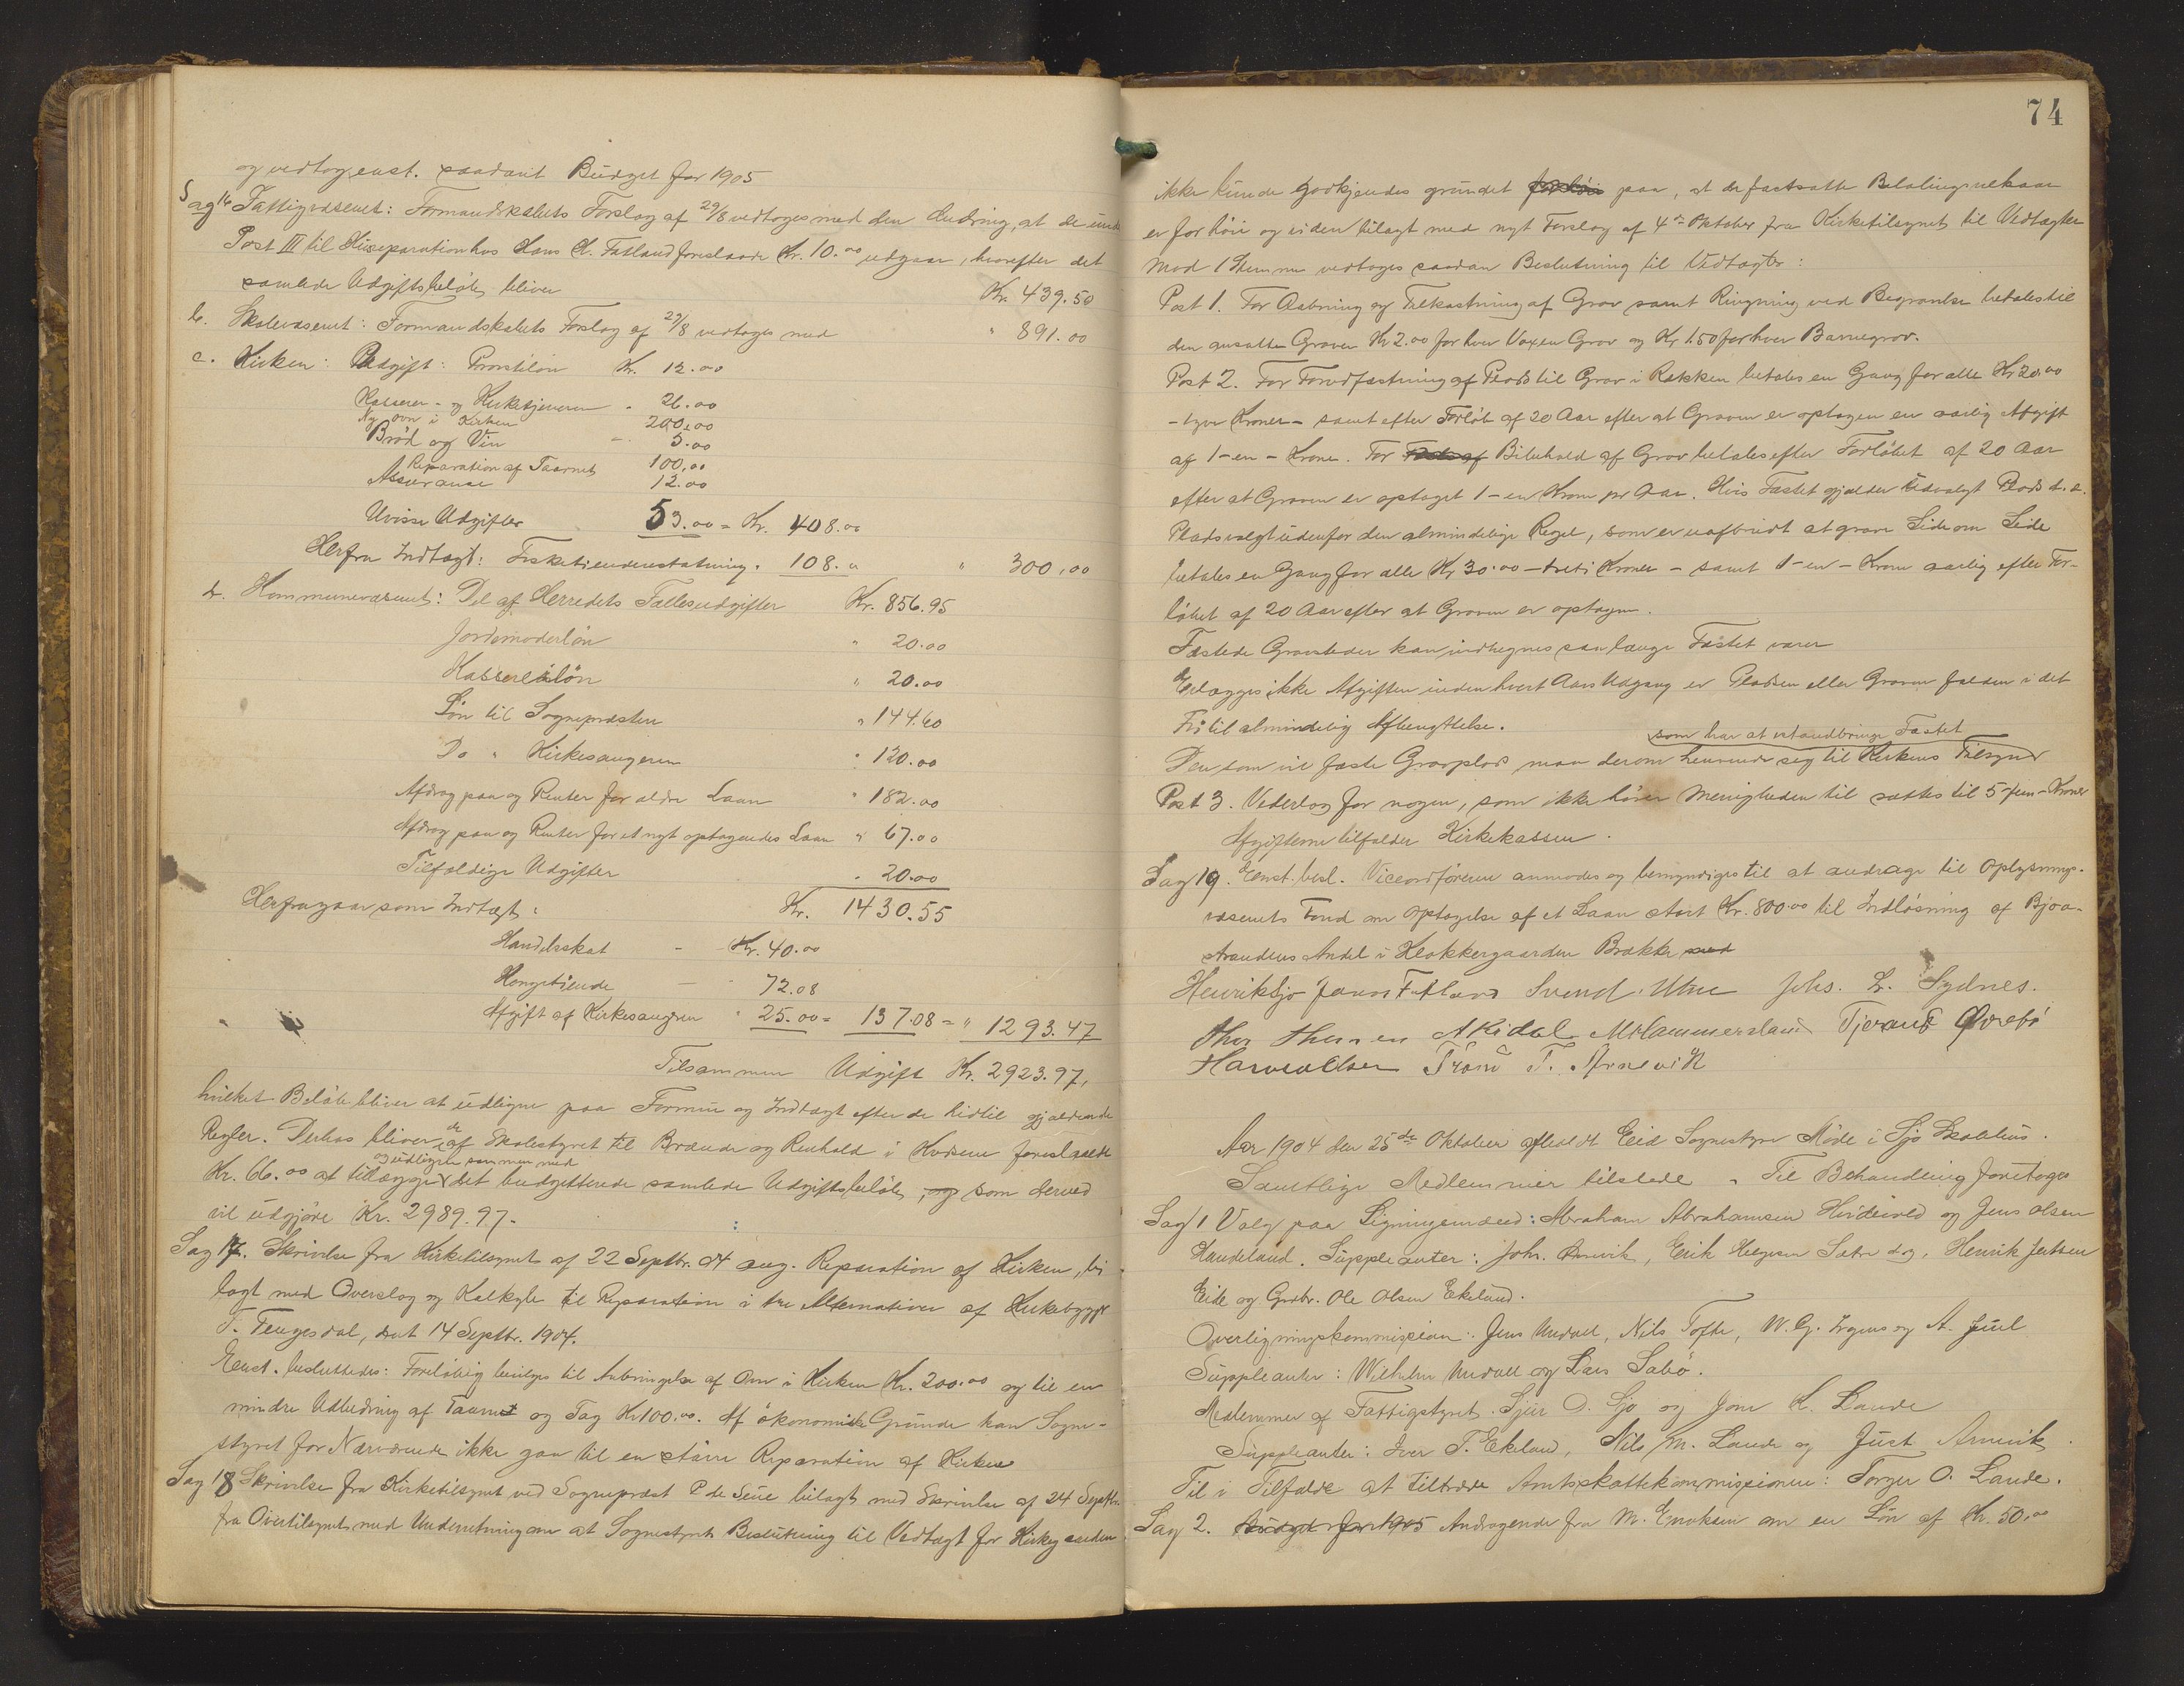 og vedtog enst. saadant Budget for 1905
Sag 16 Fattigvæsenet: Formandskabets Forslag af 29/8 vedtoges med den Ændring, at de under
Post III til Husreparation hos Hans H. Fatland foreslaaede Kr. 10.00 udgaar, hvorefter det
samlede Udgiftsbeløb bliver Kr. 439.50
b. Skolevæsenet: Formandskabets Forslag af 29/8 vedtoges med " 891.00
c. Kirken: Udgift: Provstiløn Kr. 12.00
Kasserer- og Kirketjeneren " 26.00
Ny ovn i Kirken 200.00
Brød og Vin " 5.00
Reparation af Taarnet 100,00
Assurance 12.00
Uvisse Udgifter 53.00 = Kr. 408.00
Herfra Indtægt: Fisketiendeerstatning. 108. " " 300,00
d. Kommunevæsenet: Del af Herredets Fællesudgifter Kr. 856.95
Jordemoderløn " 20.00
Kassererløn " 20.00
Løn til Sognepræsten " 144.60
Do " Kirkesangeren " 120.00
Afdrag paa og Renter for ældre Laan " 182.00
Afdrag paa og Renter for et nyt optagendes Laan " 67.00
Tilfældige Udgifter " 20.00
Kr. 1430.55
Herfra gaar som Indtægt:
Handelsskat - Kr. 40.00
Kongetiende - " 72.08
Afgift af Kirkesangeren " 25.00 = 137.08 = " 1293.47
Tilsammen Udgift Kr. 2923.97,
hvilket Beløb bliver at udligne paa Formue og Indtægt efter de hidtil gjældende
Regler. Derhos bliver de af Skolestyret til Brænde og Renhold i Kredsene foreslaaede
og udlignes sammen med
Kr. 66.00 at tillægges det budgetterede samlede Udgiftsbeløb, og som derved
vil udgjøre Kr. 2989.97.
Sag 17. Skrivelse fra Kirketilsynet af 22 Septbr. 04 ang. Reparation af Kirken, bi-
lagt med Overslag og Kalkyle til Reparation i tre Alternativer af Kirkebygger
T. Tengesdal, dat 14 Septbr. 1904.
Enst. besluttedes: Foreløbig bevilges til Anbringelse af Ovn i Kirken Kr. 200.00 og til en
mindre Udbedring af Taarnet og Tag Kr 100.00. Af økonomiske Grunde kan Sogne-
styret for Nærværende ikke gaa til en større Reparation af Kirken
Sag 18 Skrivelse fra Kirketilsynet ved Sognepræst P de Seue bilagt med Skrivelse af 24 Septbr.
fra Overtilsynet med Underretning om at Sognestyrets Beslutning til Vedtægt for Kirkegaarden
74
ikke kunde godkjendes grundet for høi paa, at de fastsatte Betalingsvilkaar
er for høie og siden bilagt med nyt Forslag af 4de Oktober fra Kirketilsynet til Vedtægter
Mod 1 Stemme vedtoges saadan Beslutning til Vedtægter:
Post 1. For Aabning og Tilkastning af Grav samt Ringning ved Begravelse betales til
den ansatte Graver Kr 2.00 for hver Voxen Grav og Kr 1.50 for hver Barnegrav.
Post 2. For Forudfæstning af Plads til Grav i Rækken betales en Gang for alle Kr 20.00
- tyve Kroner - samt efter Forløb af 20 Aar efter at Graven er optagen en aarlig Afgift
af 1 - en - Krone. For Fæste af Bibehold af Grav betales efter Forløbet af 20 Aar
efter at Graven er optaget 1 - en Krone pr Aar. Hvis Fæstet gjælder udvalgt Plads d.e.
Plads valgt udenfor den almindelige Regel, som er uafbrudt at grave Side om Side
betales en Gang for alle Kr 30.00 - treti Kroner - samt 1 - en - Krone aarlig efter For-
løbet af 20 Aar efter at Graven er optagen.
Fæstede Gravsteder kan indhegnes saa længe Fæstet varer
Erlægges ikke Afgiften inden hvert Aars Udgang er Pladsen eller Graven falden i det
Fri til almindelig Afbenyttelse.
som har at istandbringe Fæstet
Den som vil fæste Gravplads maa derom henvende sig til Kirkens Tilsyn
Post 3. Vederlag for nogen, som ikke hører Menigheden til sættes til 5 - fem - Kroner
Afgifterne tilfalder Kirkekassen.
Sag 19. Enst. besl. Viceordføreren anmodes og bemyndiges til at andrage til Oplysnings-
væsenets Fond om Optagelse af et Laan stort Kr. 800.00 til Indløsning af Bjoa-
strandens Andel i Klokkergaarden Brække med
Henrik Sjo Jonas Fatland Svend Utne Johs. L. Sydnes.
Thor Thorsen A Rødal M Hammersland Tjerand Øvrebø
Haavar Olsen Trond T. Arnevik
Aar 1904 den 25de Oktober afholdt Eid Sognestyre Møde i Sjo Skolehus.
Samtlige Medlemmer tilstede. Til Behandling foretoges
Sag 1 Valg paa Ligningsmænd: Abraham Abrahamsen Hvideivold og Jens Olsen
Haudeland. Suppleanter: Johs. Arnevik, Erik Helgesen Sætre dog, Henrik Jertsen
Eide og Grdbr. Ole Olsen Ekeland.
Overligningskommission: Jens Undall, Nils Tofte, W. G. Irgens og A. Juul
Suppleanter: Wilhelm Undall og Lars Sæbø.
Medlemmer af Fattigstyret. Sjur O. Sjo og Jone K. Lande
Suppleanter: Iver T. Ekeland, Nils M. Lande og Just Arnevik.
Til i Tilfælde at tiltræde Amtsskattekommissionen: Torger O. Lande.
Sag 2. Budget for 1905 Andragende fra M. Enoksen om en Løn af Kr. 50.00